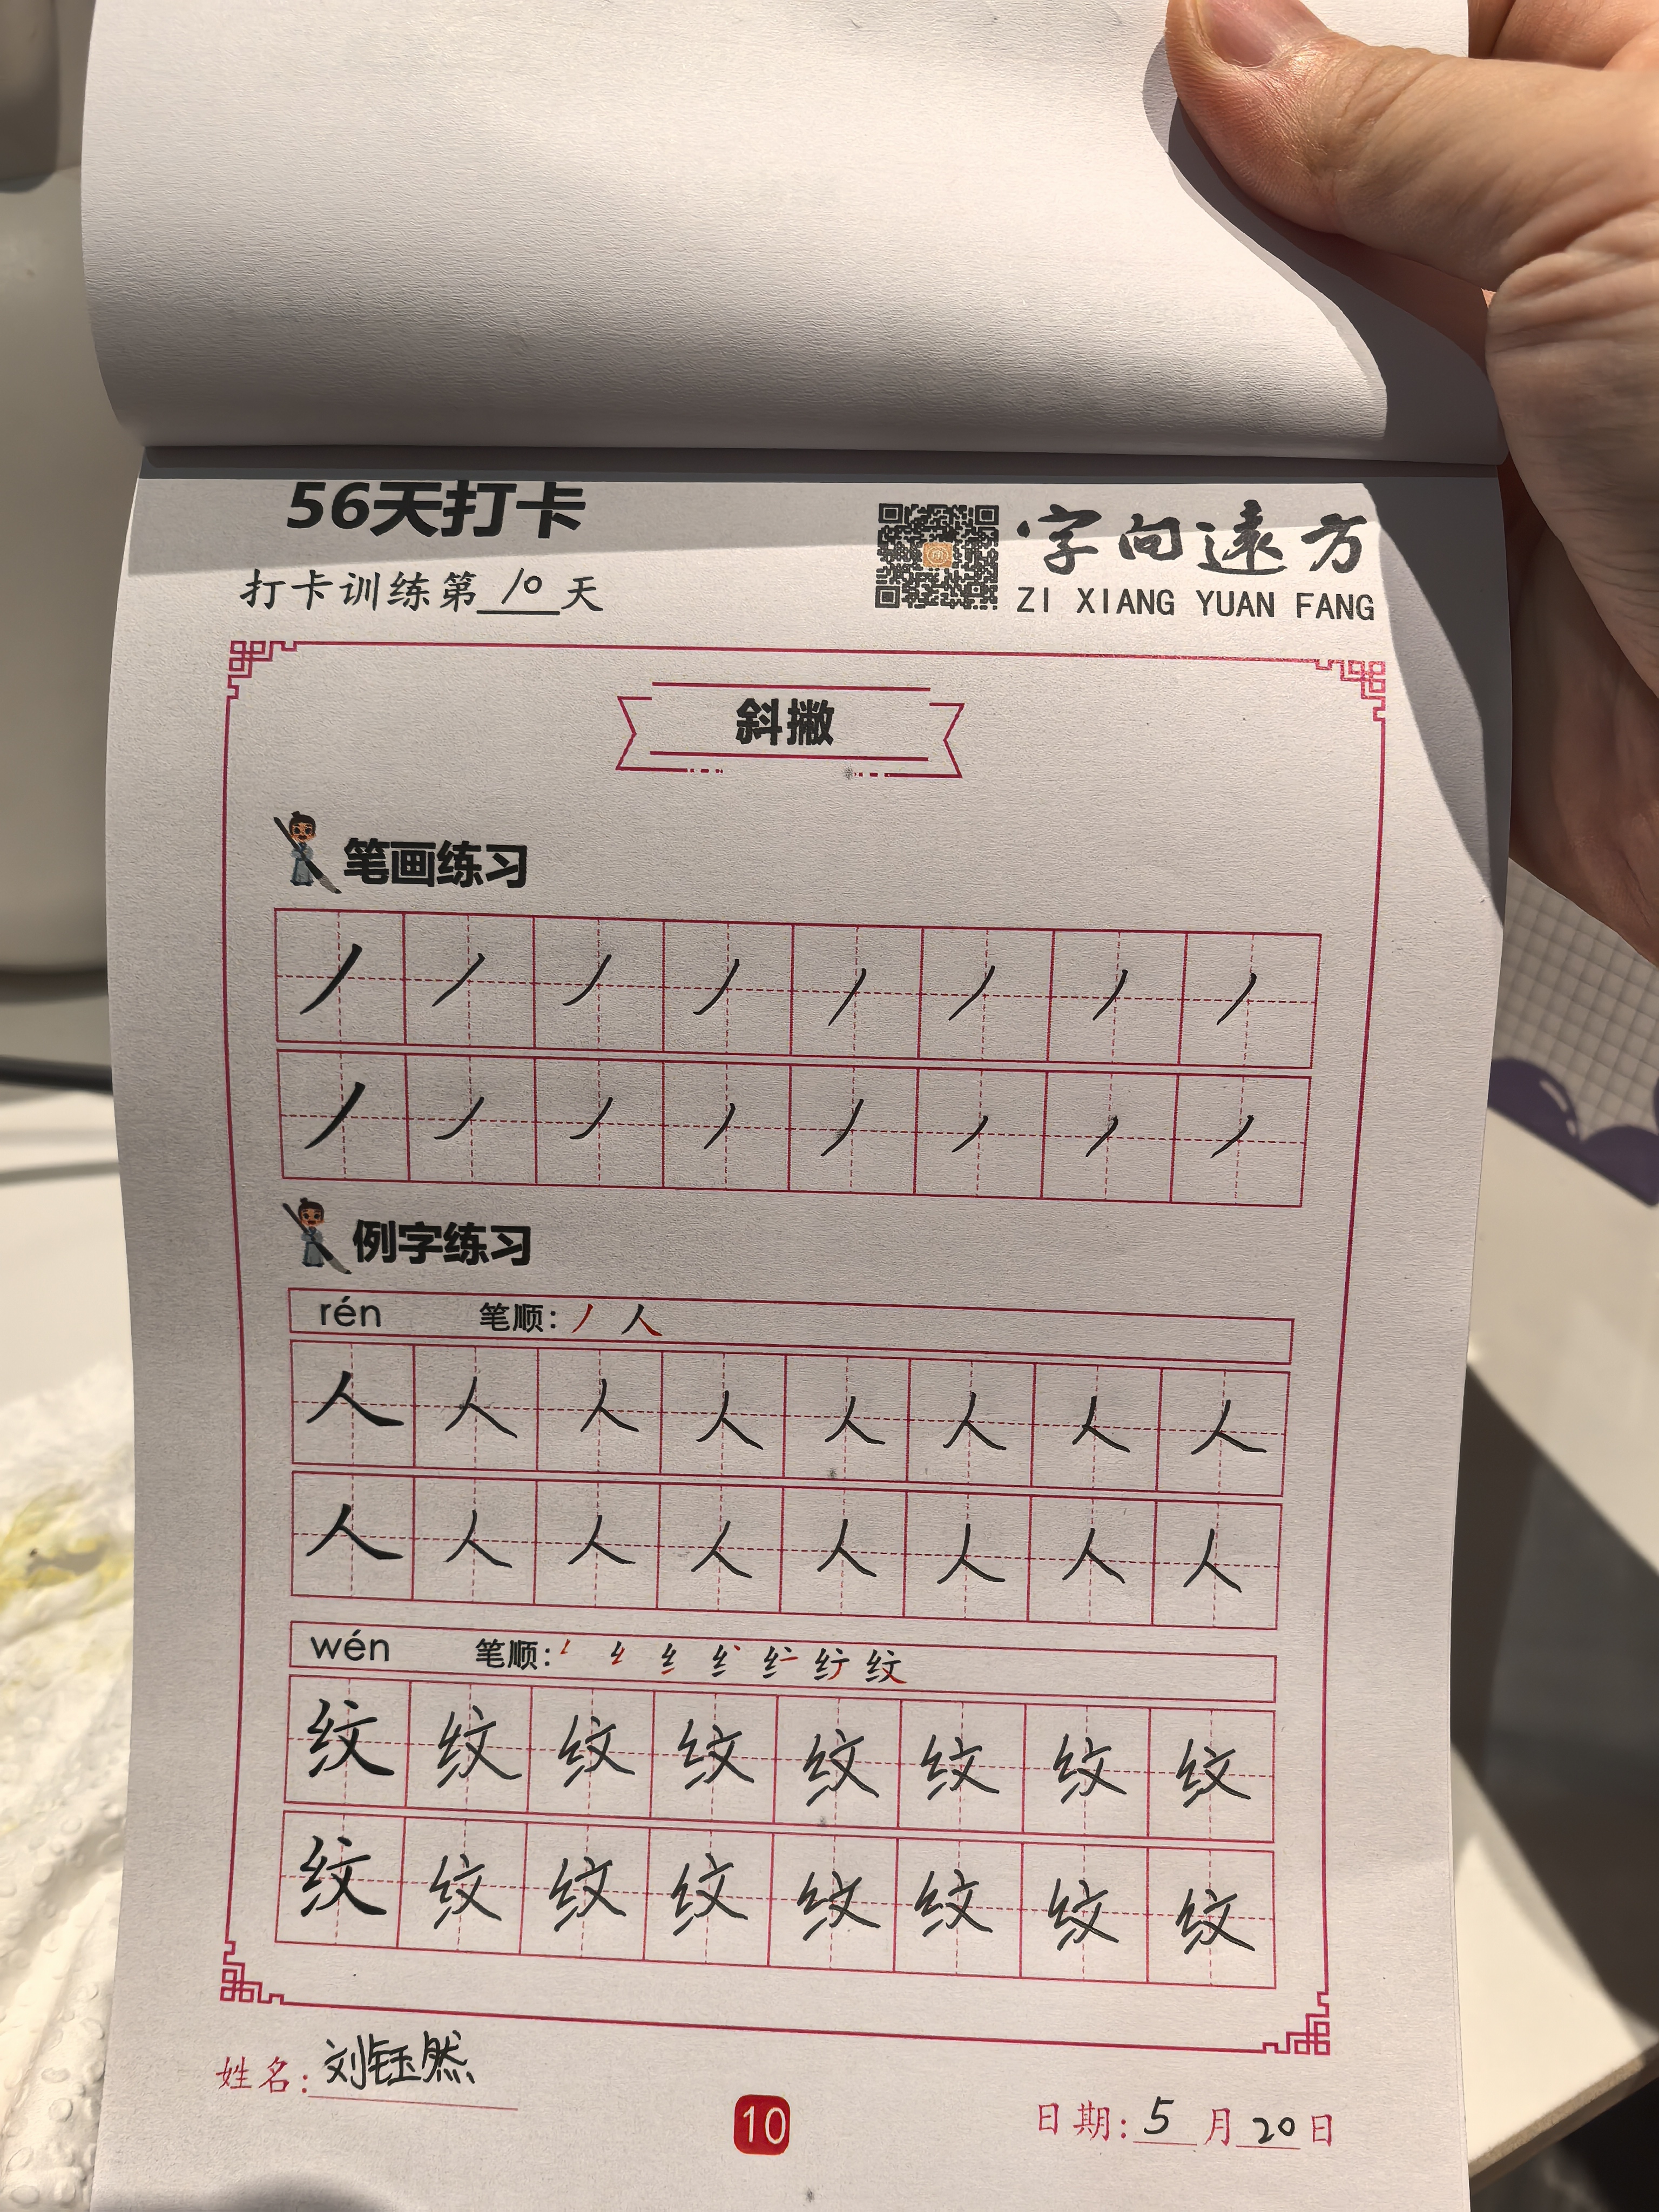 56天打卡
字向遠方
打卡训练第10天
ZI XIANG YUAN FANG
斜撇
笔画练习
丿丿丿丿丿丿丿丿
丿丿丿丿丿丿丿丿
例字练习
rén 笔顺：丿 人
人人人人人人人人
人人人人人人人人
wén 笔顺：
纹纹纹纹纹纹纹纹
纹纹纹纹纹纹纹纹
姓名：刘钰然
10
日期：5月20日